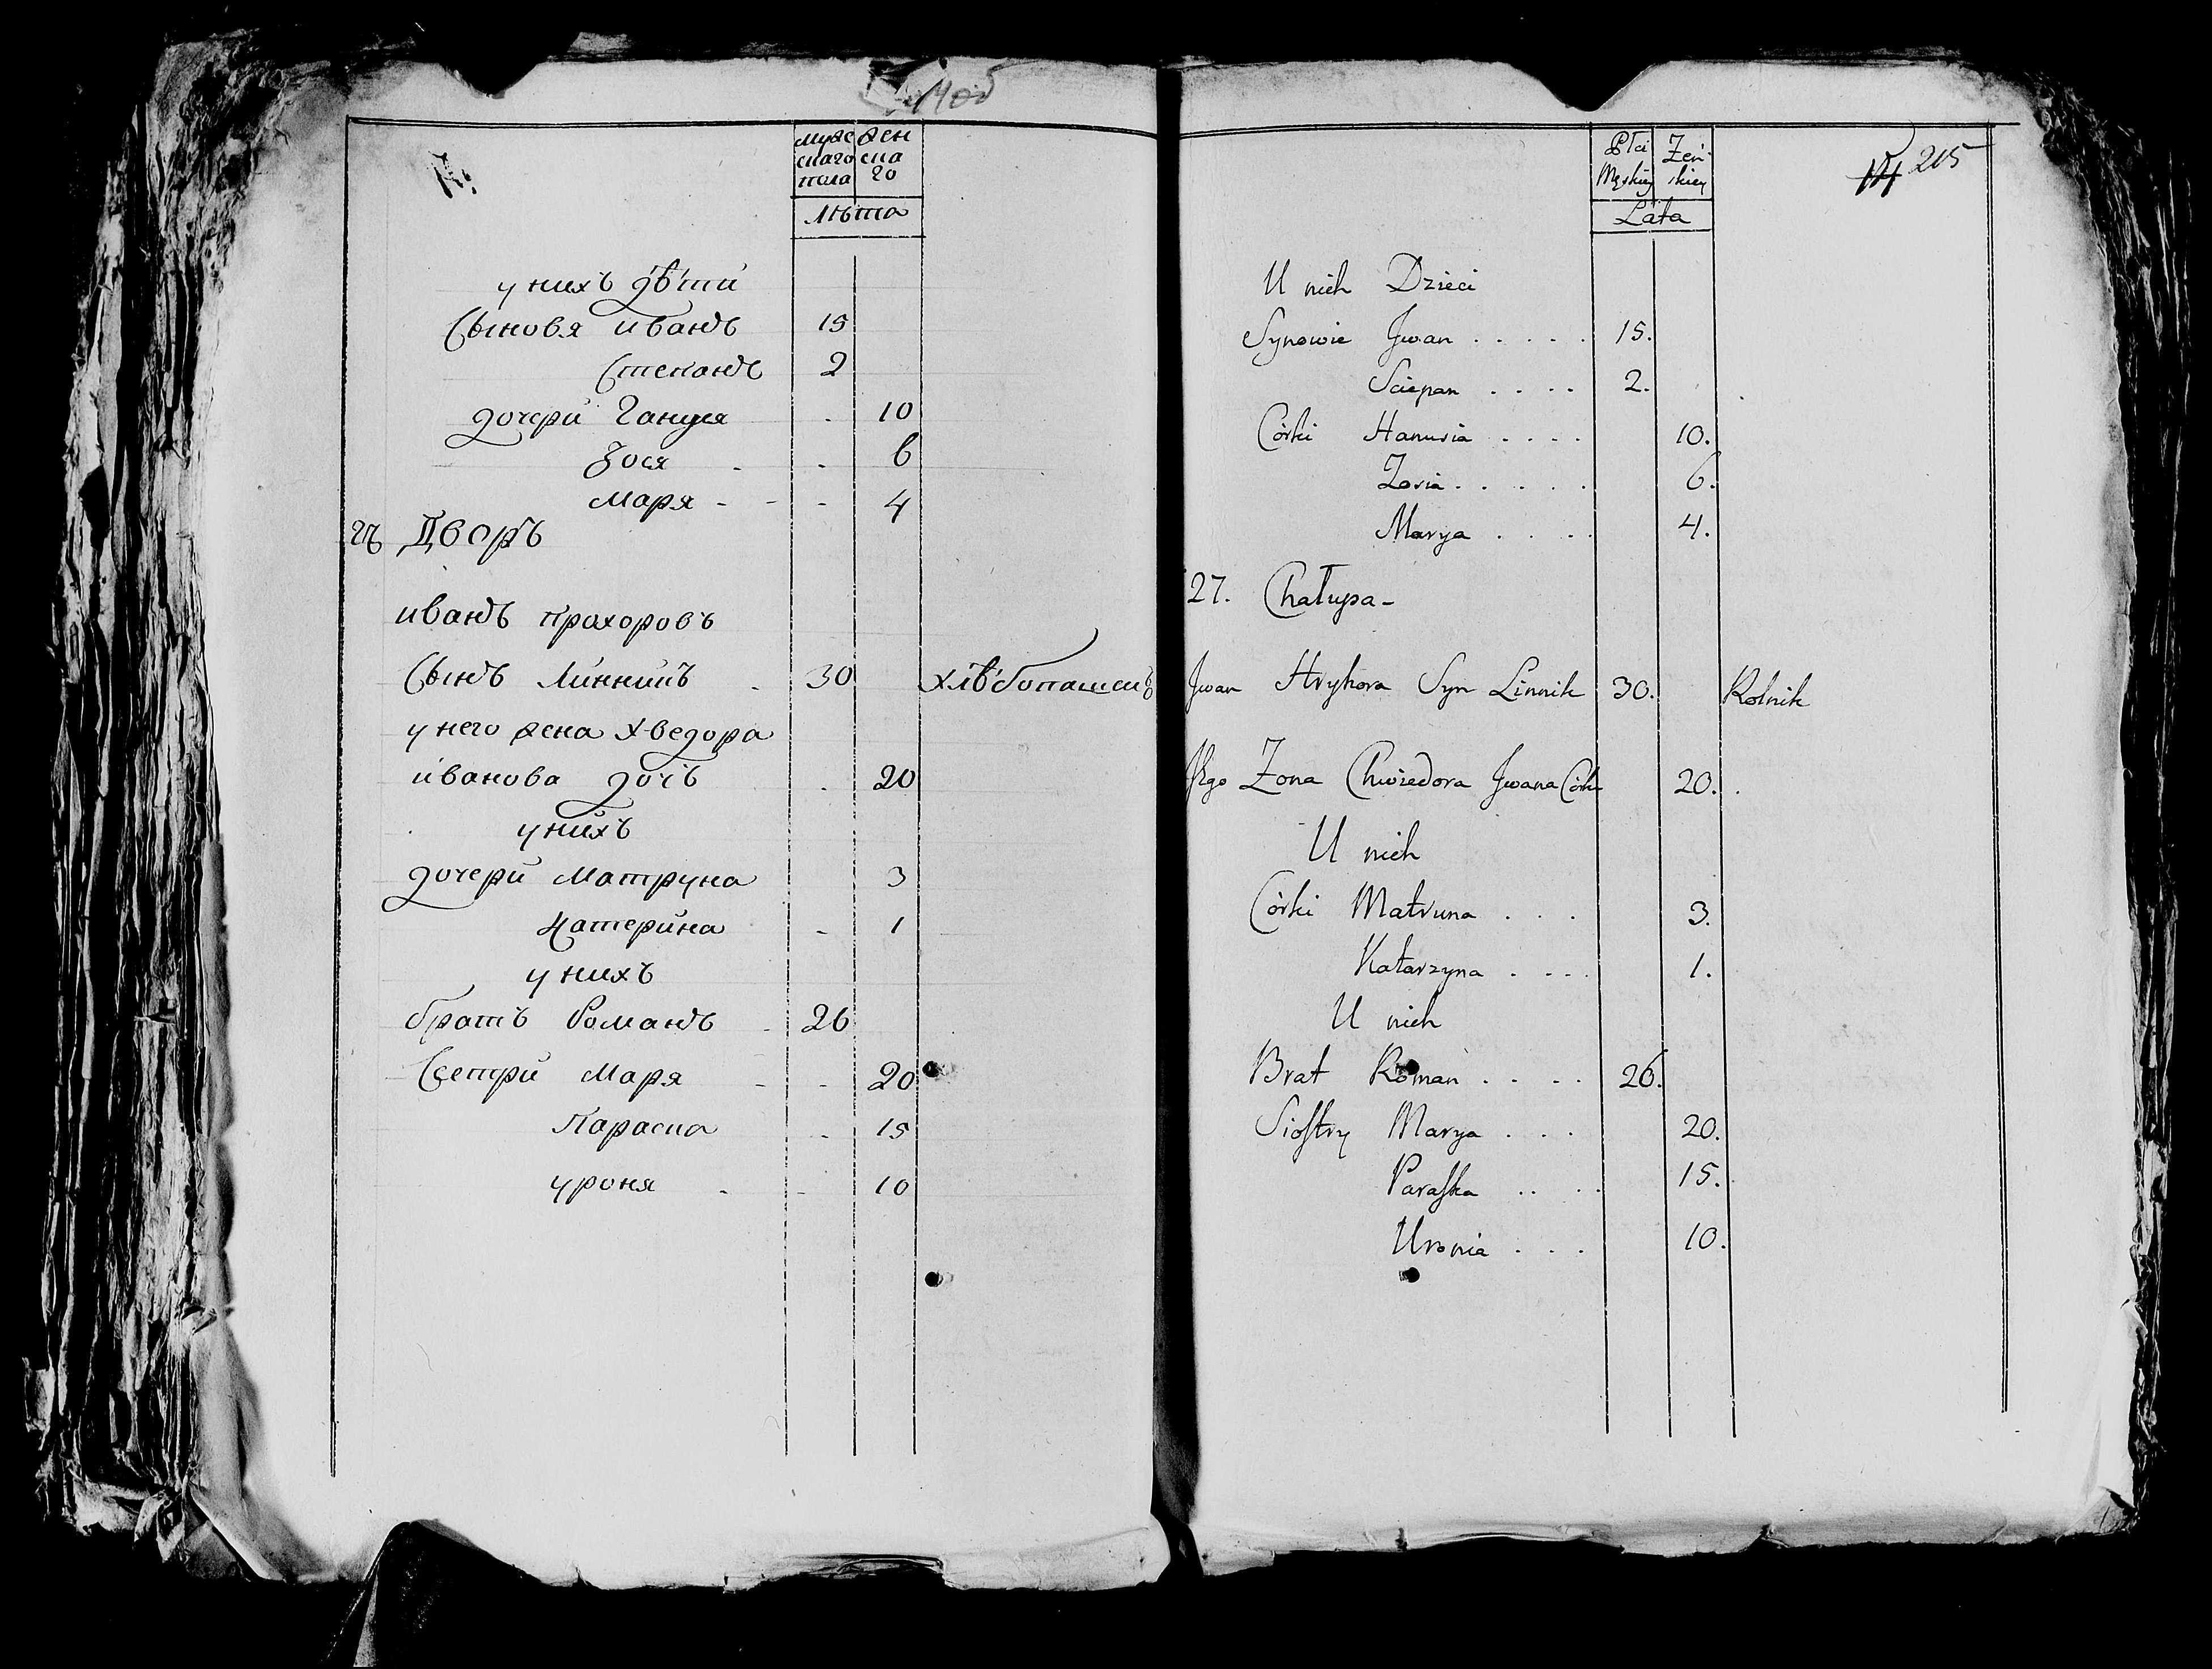 мужс
каго
пола
жен
ска
го
лѣта
у нихъ дѣти
Сыновя иванъ 15
Степанъ 2
дочери Гануся 10
Зося 6
Маря 4
Дворъ
иванъ прохоровъ
Сынъ Линникъ 30 хлѣбопашецъ
у него жена Хведора
иванова дочь 20
у нихъ
дочери Матруна 3
Катерина 1
у нихъ
братъ Романъ 26
Сестри Маря 20
Параска 15
уроня 10
215
Płci
Męskiey
Żeń-
skiey
Lata
U nich Dzieci
Synowie Jwan . . . . . 15.
Sciepan . . . . 2.
Córki Hanusia . . . . 10.
Zosia . . . . . 6.
Marya . . . . 4.
27. Chałupa-
Jwan Hryhora Syn Linnik 30. Rolnik
Jego Zona Chwiedora Jwana Córka 20.
U nich
Córki Matruna . . . 3.
Katarzyna . . . . 1.
U nich
Brat Roman . . . . 26.
Siostry Marya . . . 20.
Paraska . . . . 15.
Uronia . . . 10.